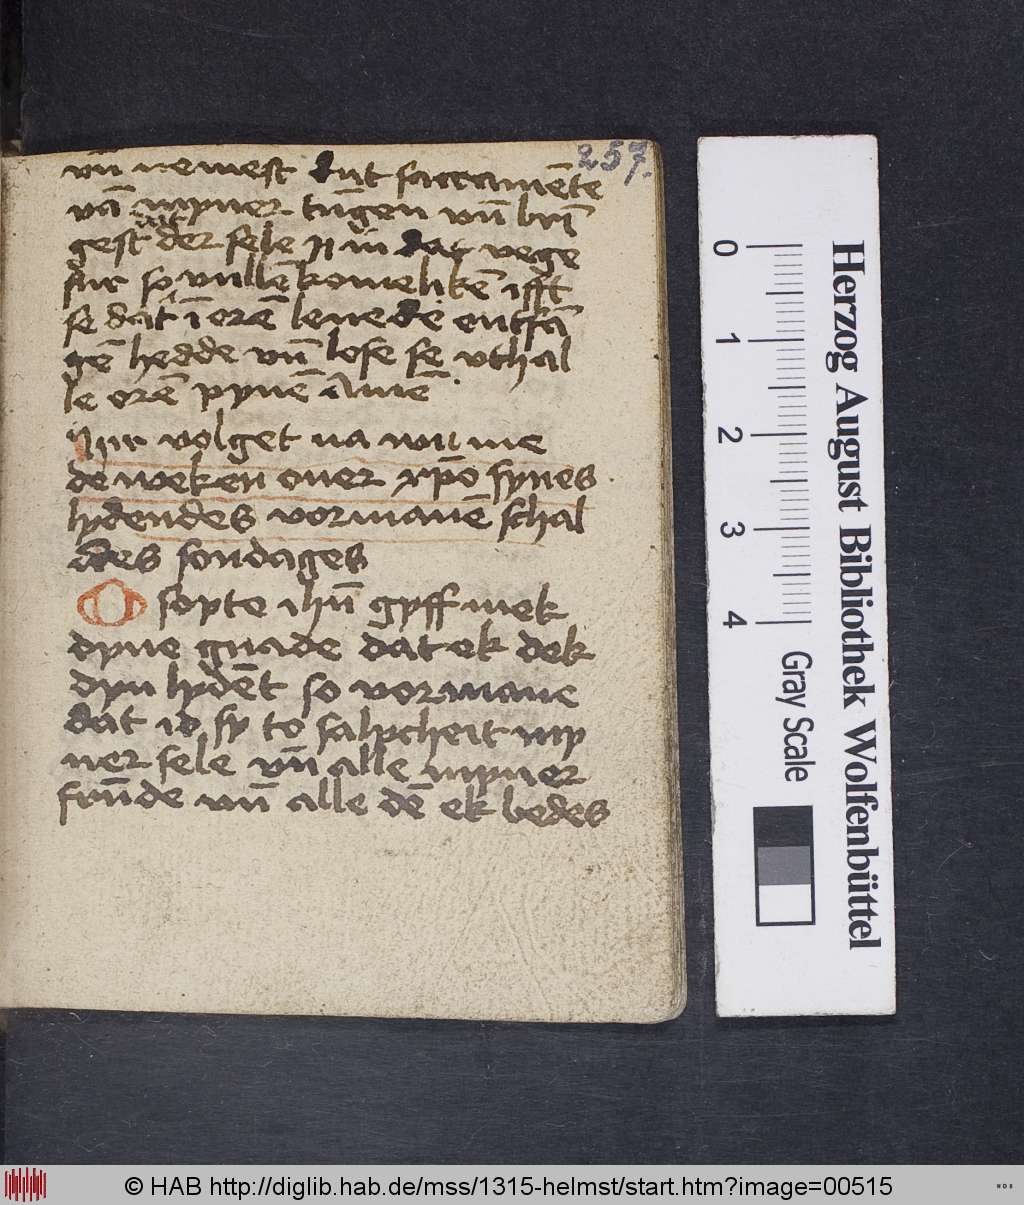 257.
vn̄ nemest dut sacramēte
vā myner tūgen vn̄ brī
gest dat der sele N in dat vege
fur so vullēkomelikē ifft
se dat ī erē leuede entfā
gē hedde vn̄ lose se vth al
le erē pynē Amē
Hir volget na wu me
de weken ouer xp̄o synes
lydendes vormanē schal
des sondages
O sopte ihū gyff mek
dyne gnade dat ek dek
dyn lydēt so vormane
dat id sy to salycheit my
ner sele vn̄ alle myner
frūde vn̄ alle dē ek bedes
0 1 2 3 4
Gray Scale
Herzog August Bibliothek Wolfenbüttel
© HAB http://diglib.hab.de/mss/1315-helmst/start.htm?image=00515